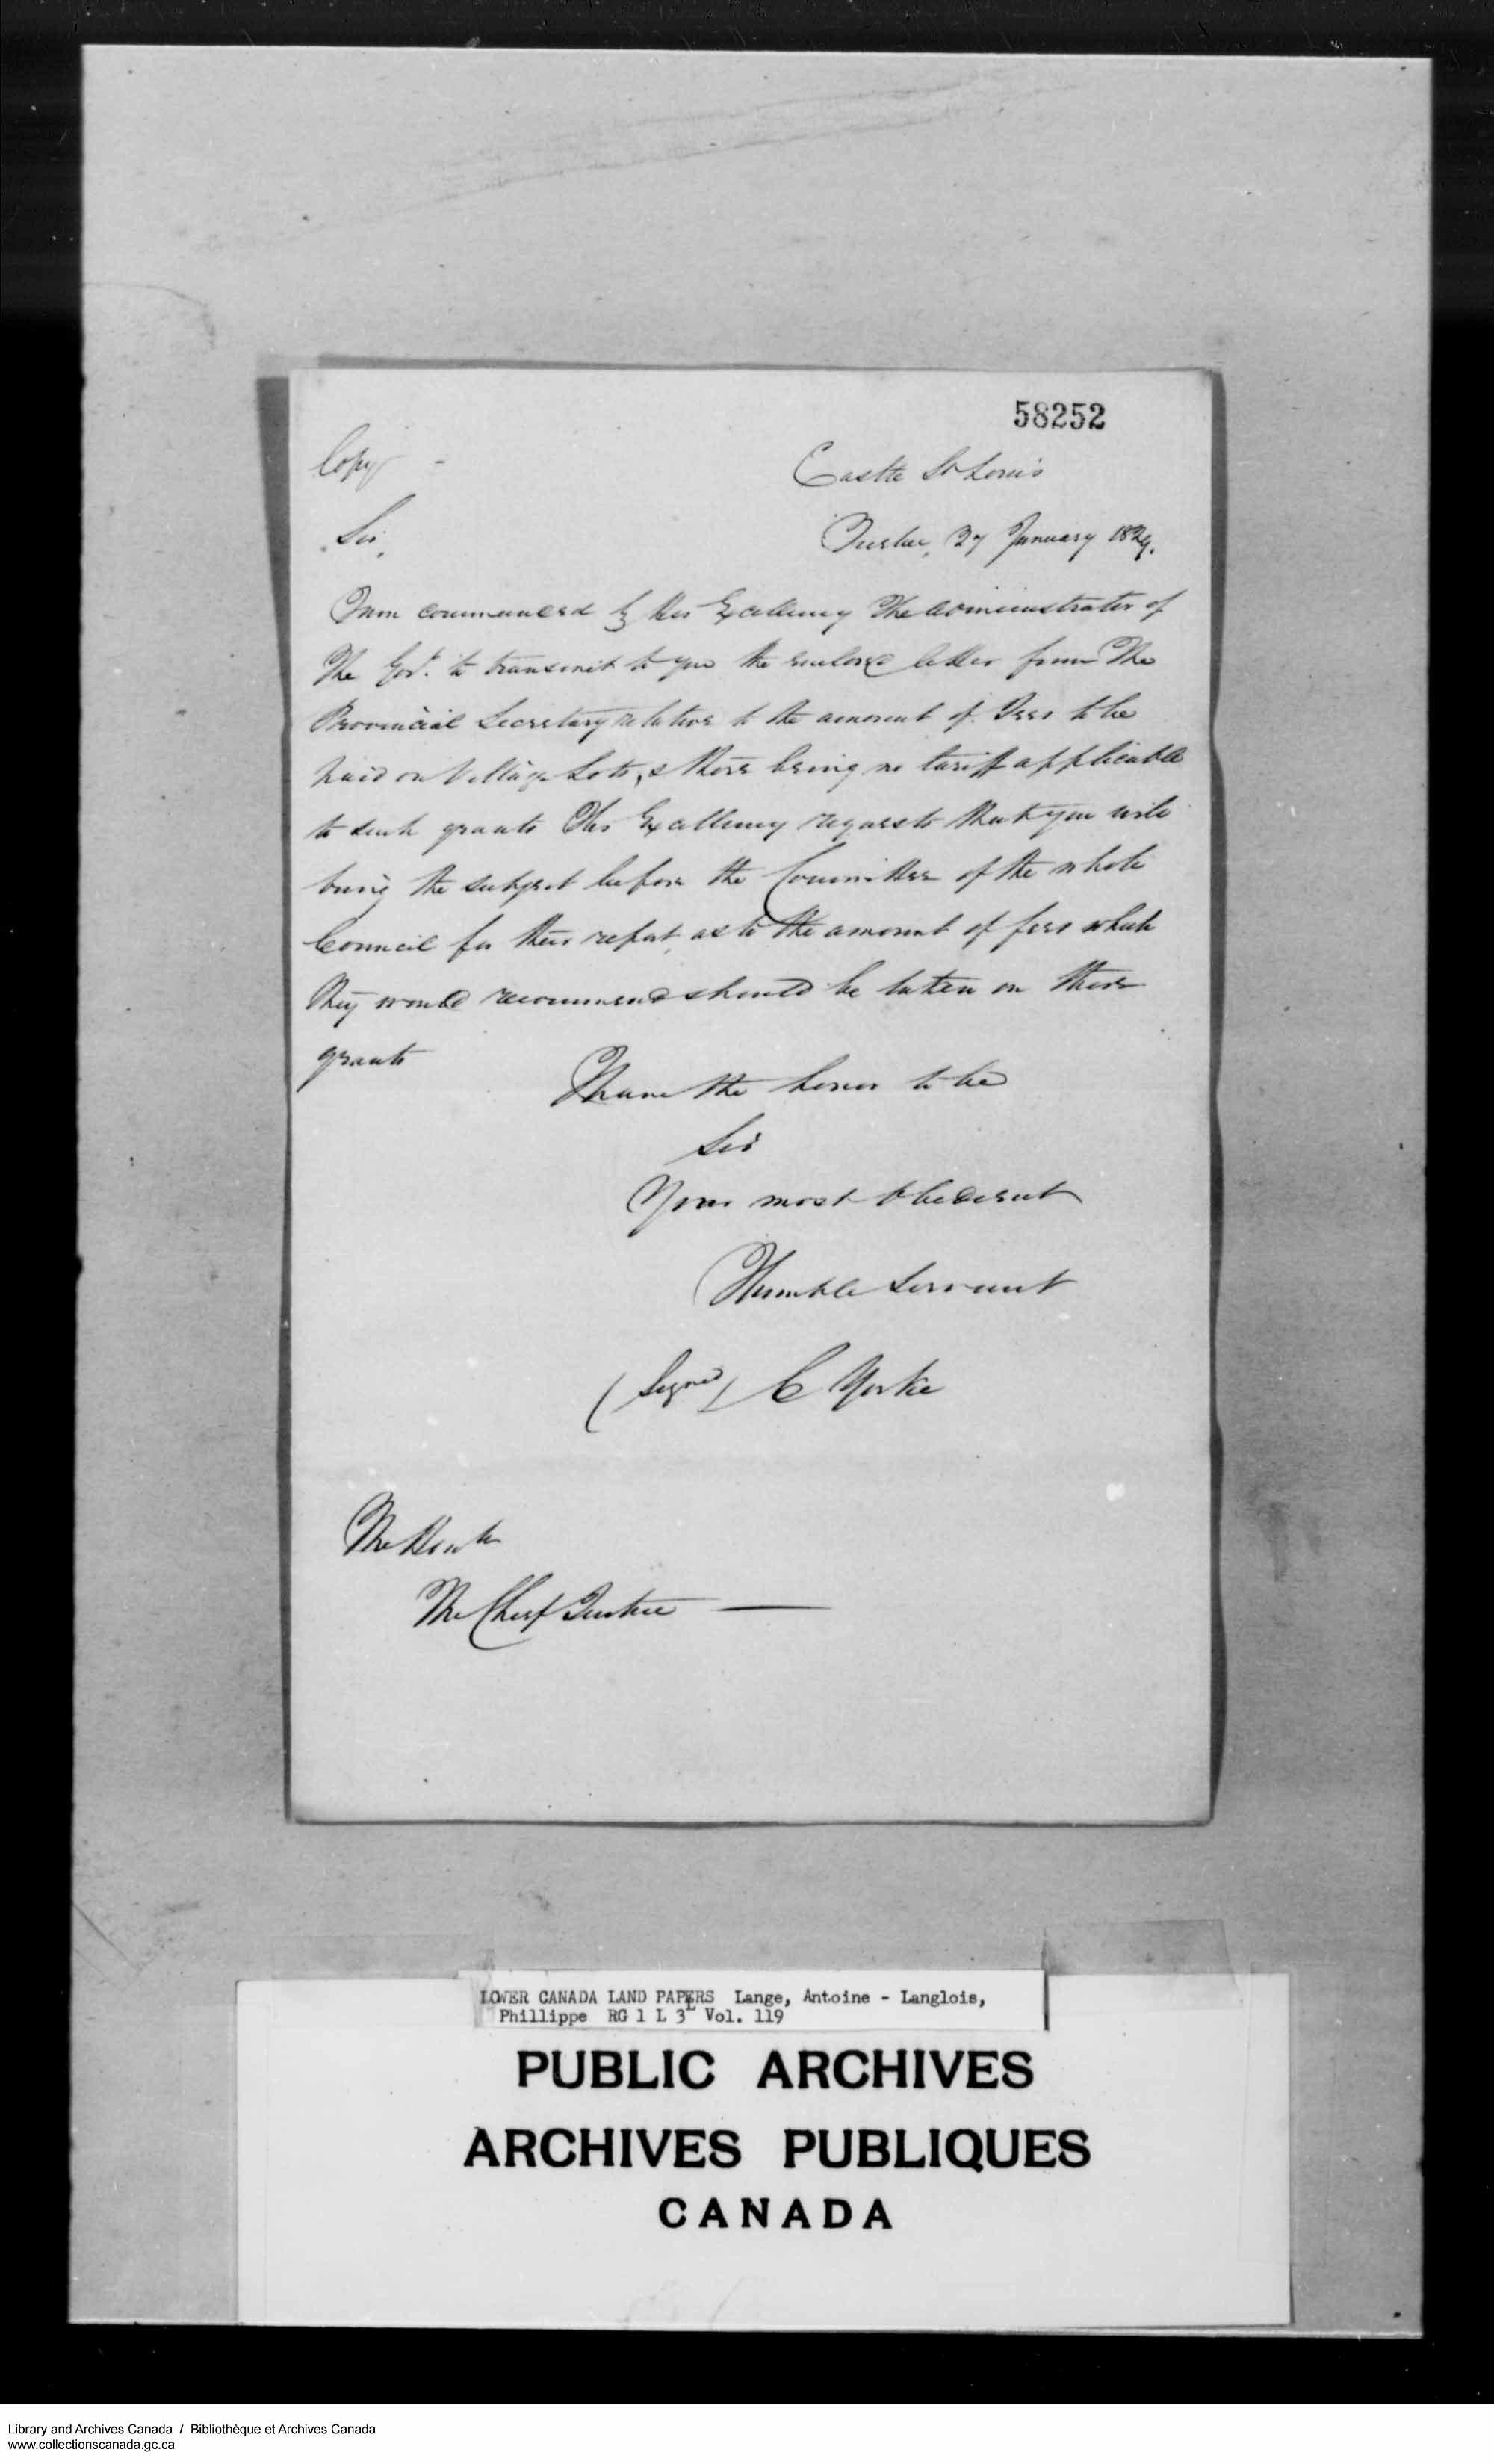 58252
Copy -
Castle St Louis
Sir,
Quebec, 27 January 1829.
I am commanded by His Excellency The Administrator of
The Govt. to transmit to you the enclosed letter from The
Provincial Secretary relative to the amount of Fees to be
paid on Village Lots, & there being no tariff applicable
to such grants His Excellency requests that you will
bring the subject before the Committee of the whole
Council for their report, as to the amount of fees which
they would recommend should be taken on these
grants
I have the honor to be
Sir
Your most obedient
Humble Servant
(Signed) C Yorke
The Honble
The Chief Justice —
LOWER CANADA LAND PAPERS Lange, Antoine - Langlois,
Phillippe RG 1 L 3L Vol. 119
PUBLIC ARCHIVES
ARCHIVES PUBLIQUES
CANADA
Library and Archives Canada / Bibliothèque et Archives Canada
www.collectionscanada.gc.ca